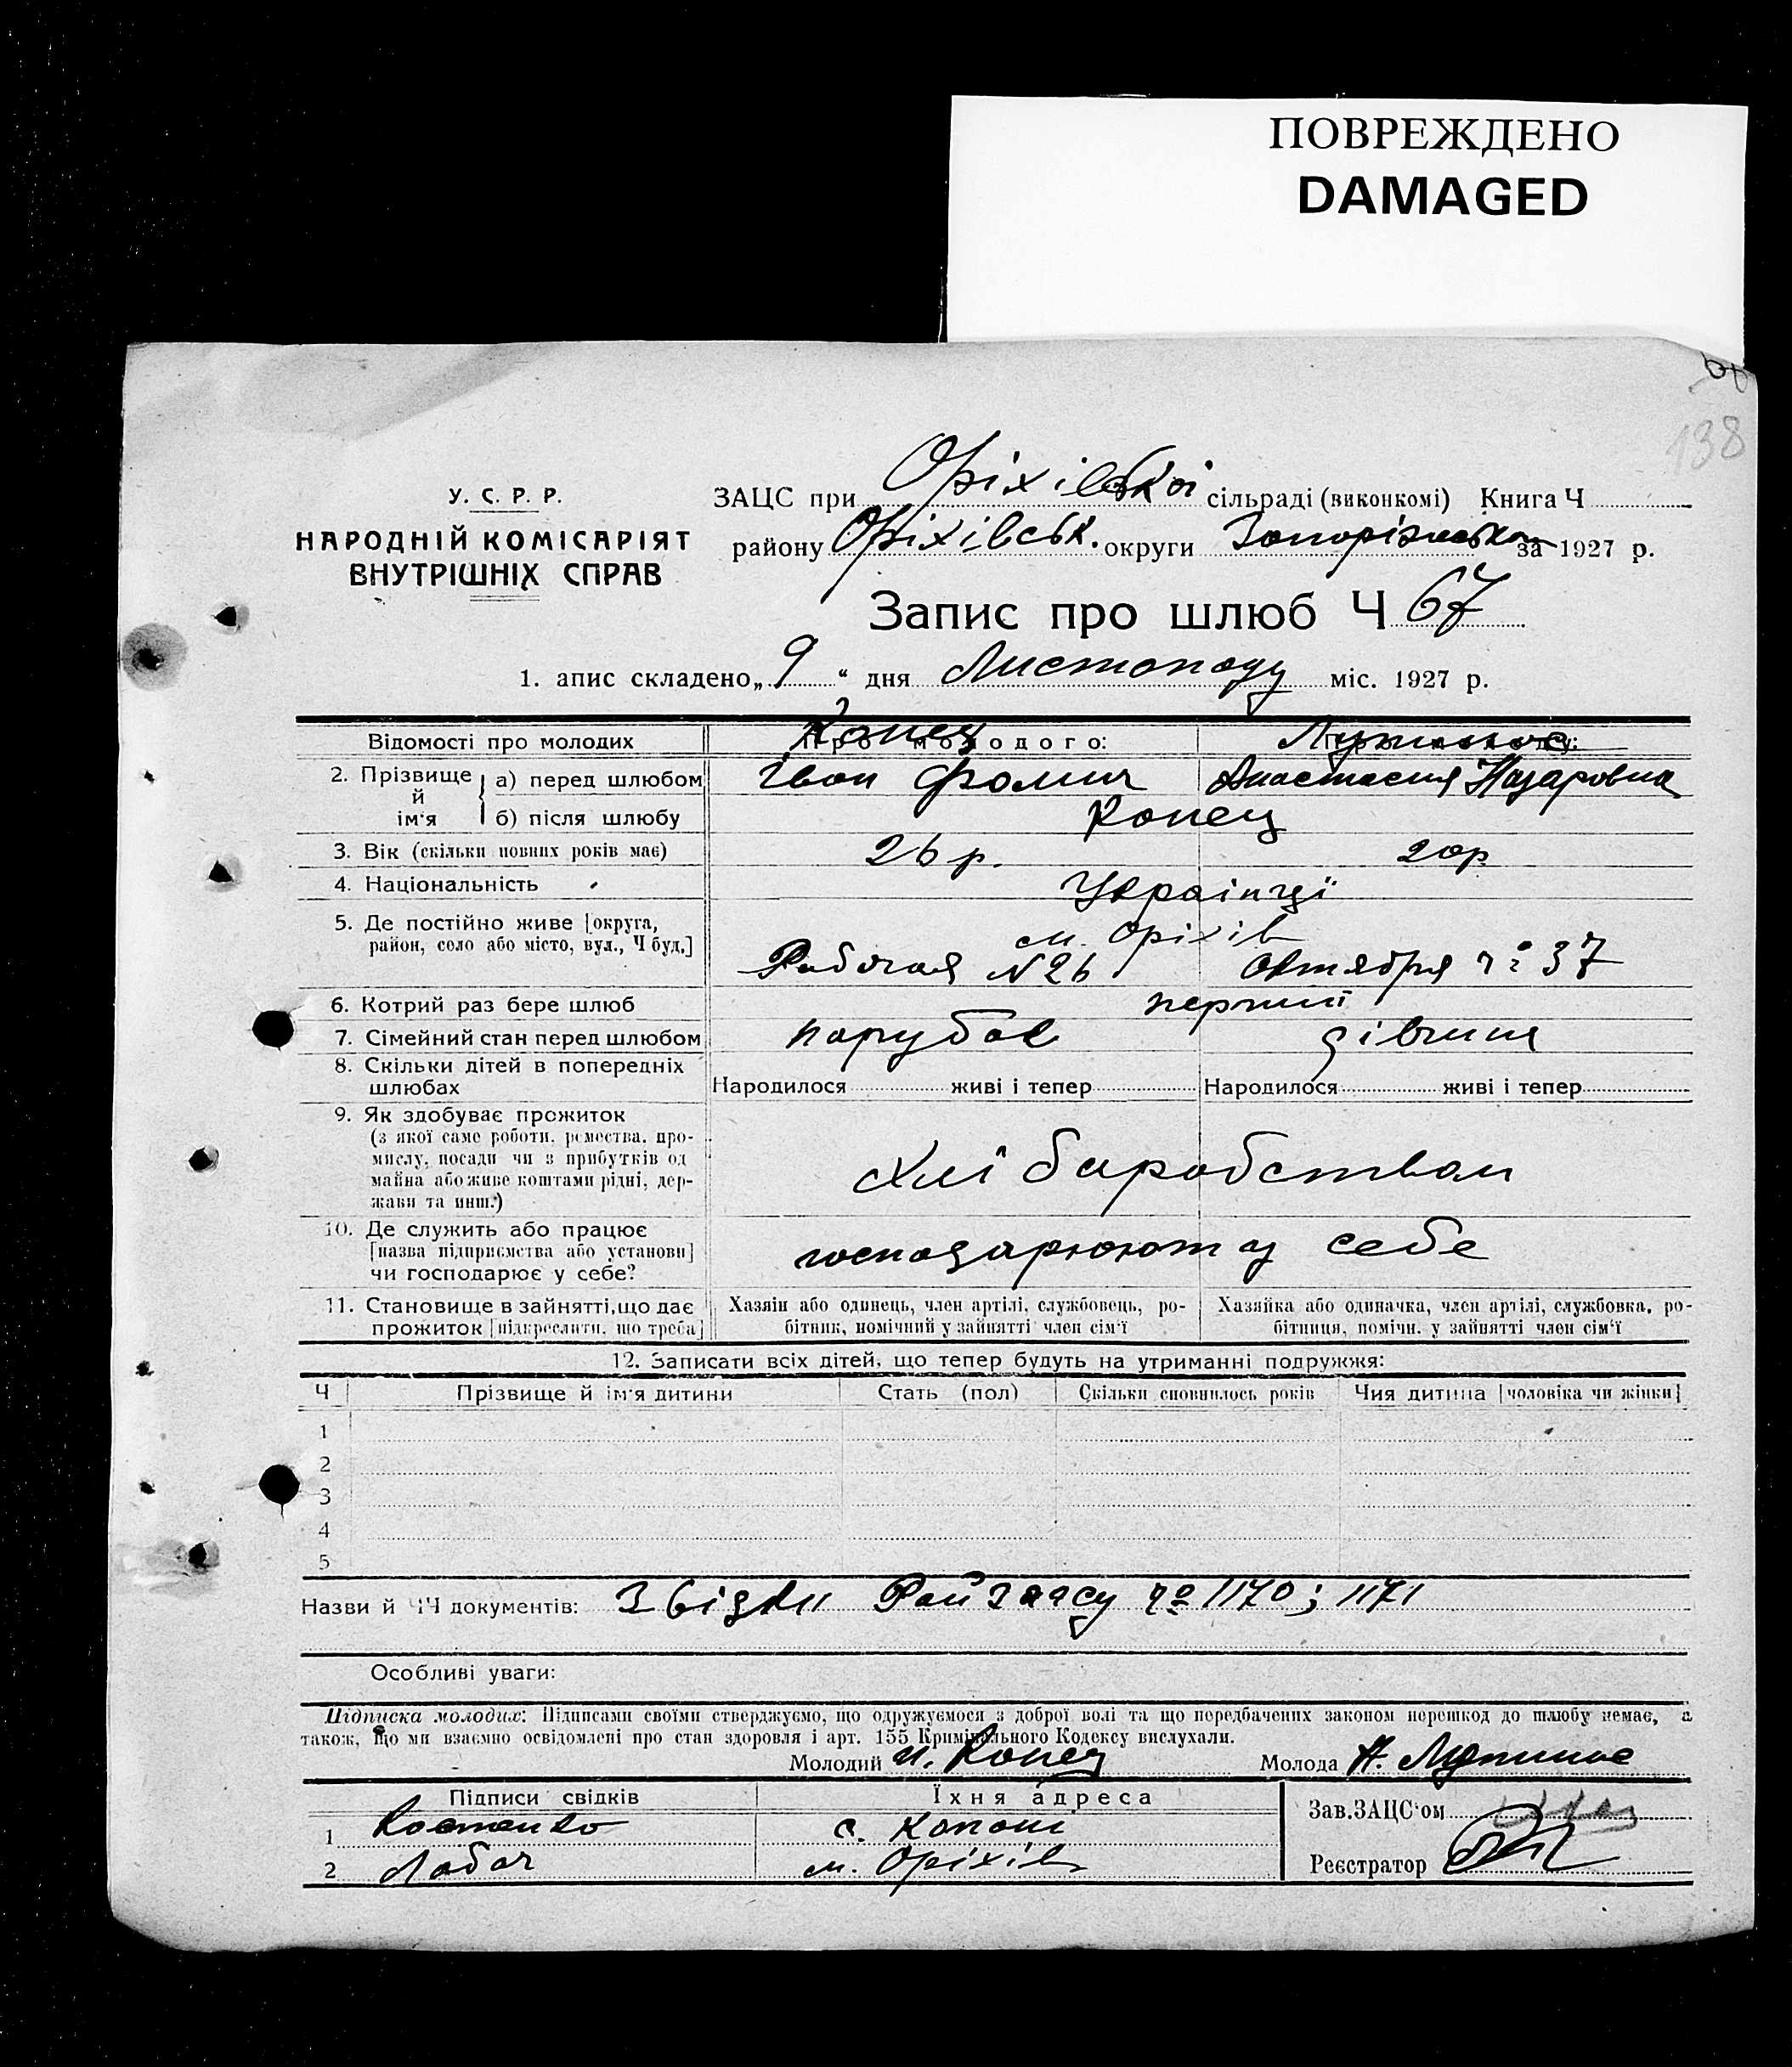 ПОВРЕЖДЕНО
DAMAGED
138
У. С. Р. Р.
НАРОДНІЙ КОМІСАРІЯТ
ВНУТРІШНІХ СПРАВ
ЗАЦС при Оріхівській сільраді (виконкомі) Книга Ч
району Оріхівськ. округи Запорізької за 1927 р.
Запис про шлюб Ч 67
1. апис складено „ 9 “ дня Листопаду міс. 1927 р.
Відомості про молодих
Про молодого:
Конец
2. Прізвище й ім'я
а) перед шлюбом
Іван Фомич
Анастасия Назаровна
б) після шлюбу
Конец
3. Вік (скільки повних років має)
26 р.
20 р.
4. Національність
Українці
5. Де постійно живе [округа,
район, село або місто, вул., Ч буд.]
м. Оріхів
Рабочая № 26
Октября № 37
6. Котрий раз бере шлюб
перший
7. Сімейний стан перед шлюбом
парубок
дівчина
8. Скільки дітей в попередніх
шлюбах
Народилося живі і тепер
Народилося живі і тепер
9. Як здобуває прожиток
(з якої саме роботи, ремества, про-
мислу, посади чи з прибутків од
майна або живе коштами рідні, дер-
жави та инш.)
Хліборобством
10. Де служить або працює
[назва підприємства або установи]
чи господарює у себе?
господарюют у себе
11. Становище в зайнятті, що дає
прожиток [підкреслити, що треба]
Хазяїн або одинець, член артілі, службовець, ро-
бітник, помічний у зайнятті член сім'ї
Хазяйка або одиначка, член артілі, службовка, ро-
бітниця, помічн. у зайнятті член сім'ї
12. Записати всіх дітей, що тепер будуть на утриманні подружжя:
Ч Прізвище й ім'я дитини Стать (пол) Скільки сповнилось років Чия дитина [чоловіка чи жінки]
1
2
3
4
5
Назви й ЧЧ документів: Звідки Райзагсу № 1170; 1171
Особливі уваги:
Підписка молодих: Підписами своїми стверджуємо, що одружуємося з доброї волі та що передбачених законом перешкод до шлюбу немає, а
також, що ми взаємно освідомлені про стан здоровля і арт. 155 Кримінального Кодексу вислухали.
Молодий И. Конец Молода
Підписи свідків
Їхня адреса
1 Костенко с. Копани
2 Лобач м. Оріхів
Зав. ЗАЦС'ом
Реєстратор